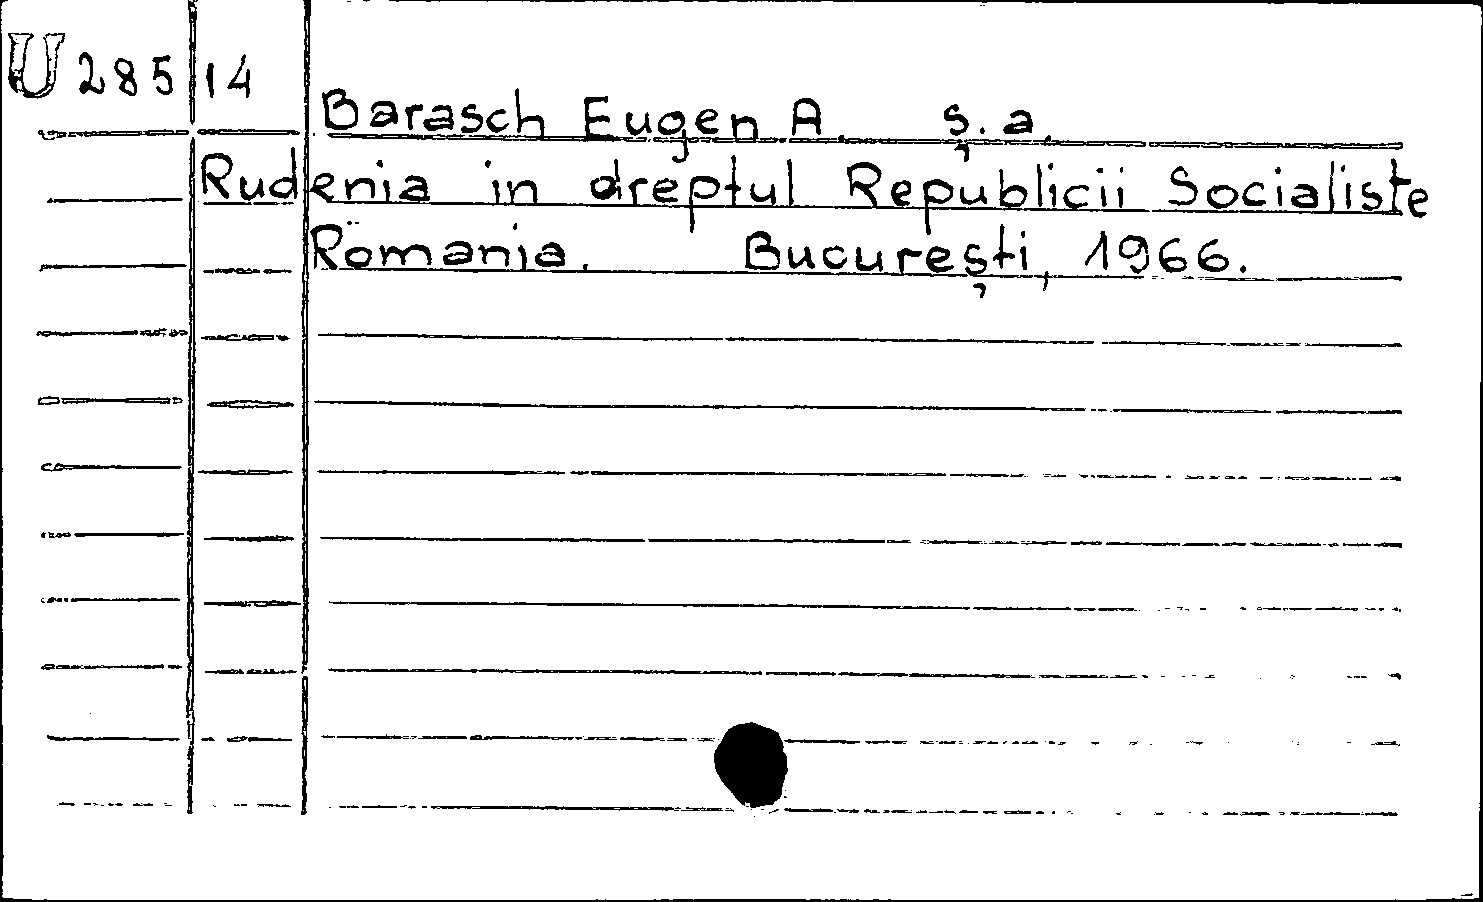 U 285 14
Barasch Eugen A. ș. a.
Rudenia in dreptul Republicii Socialiste
Romania. București, 1966.